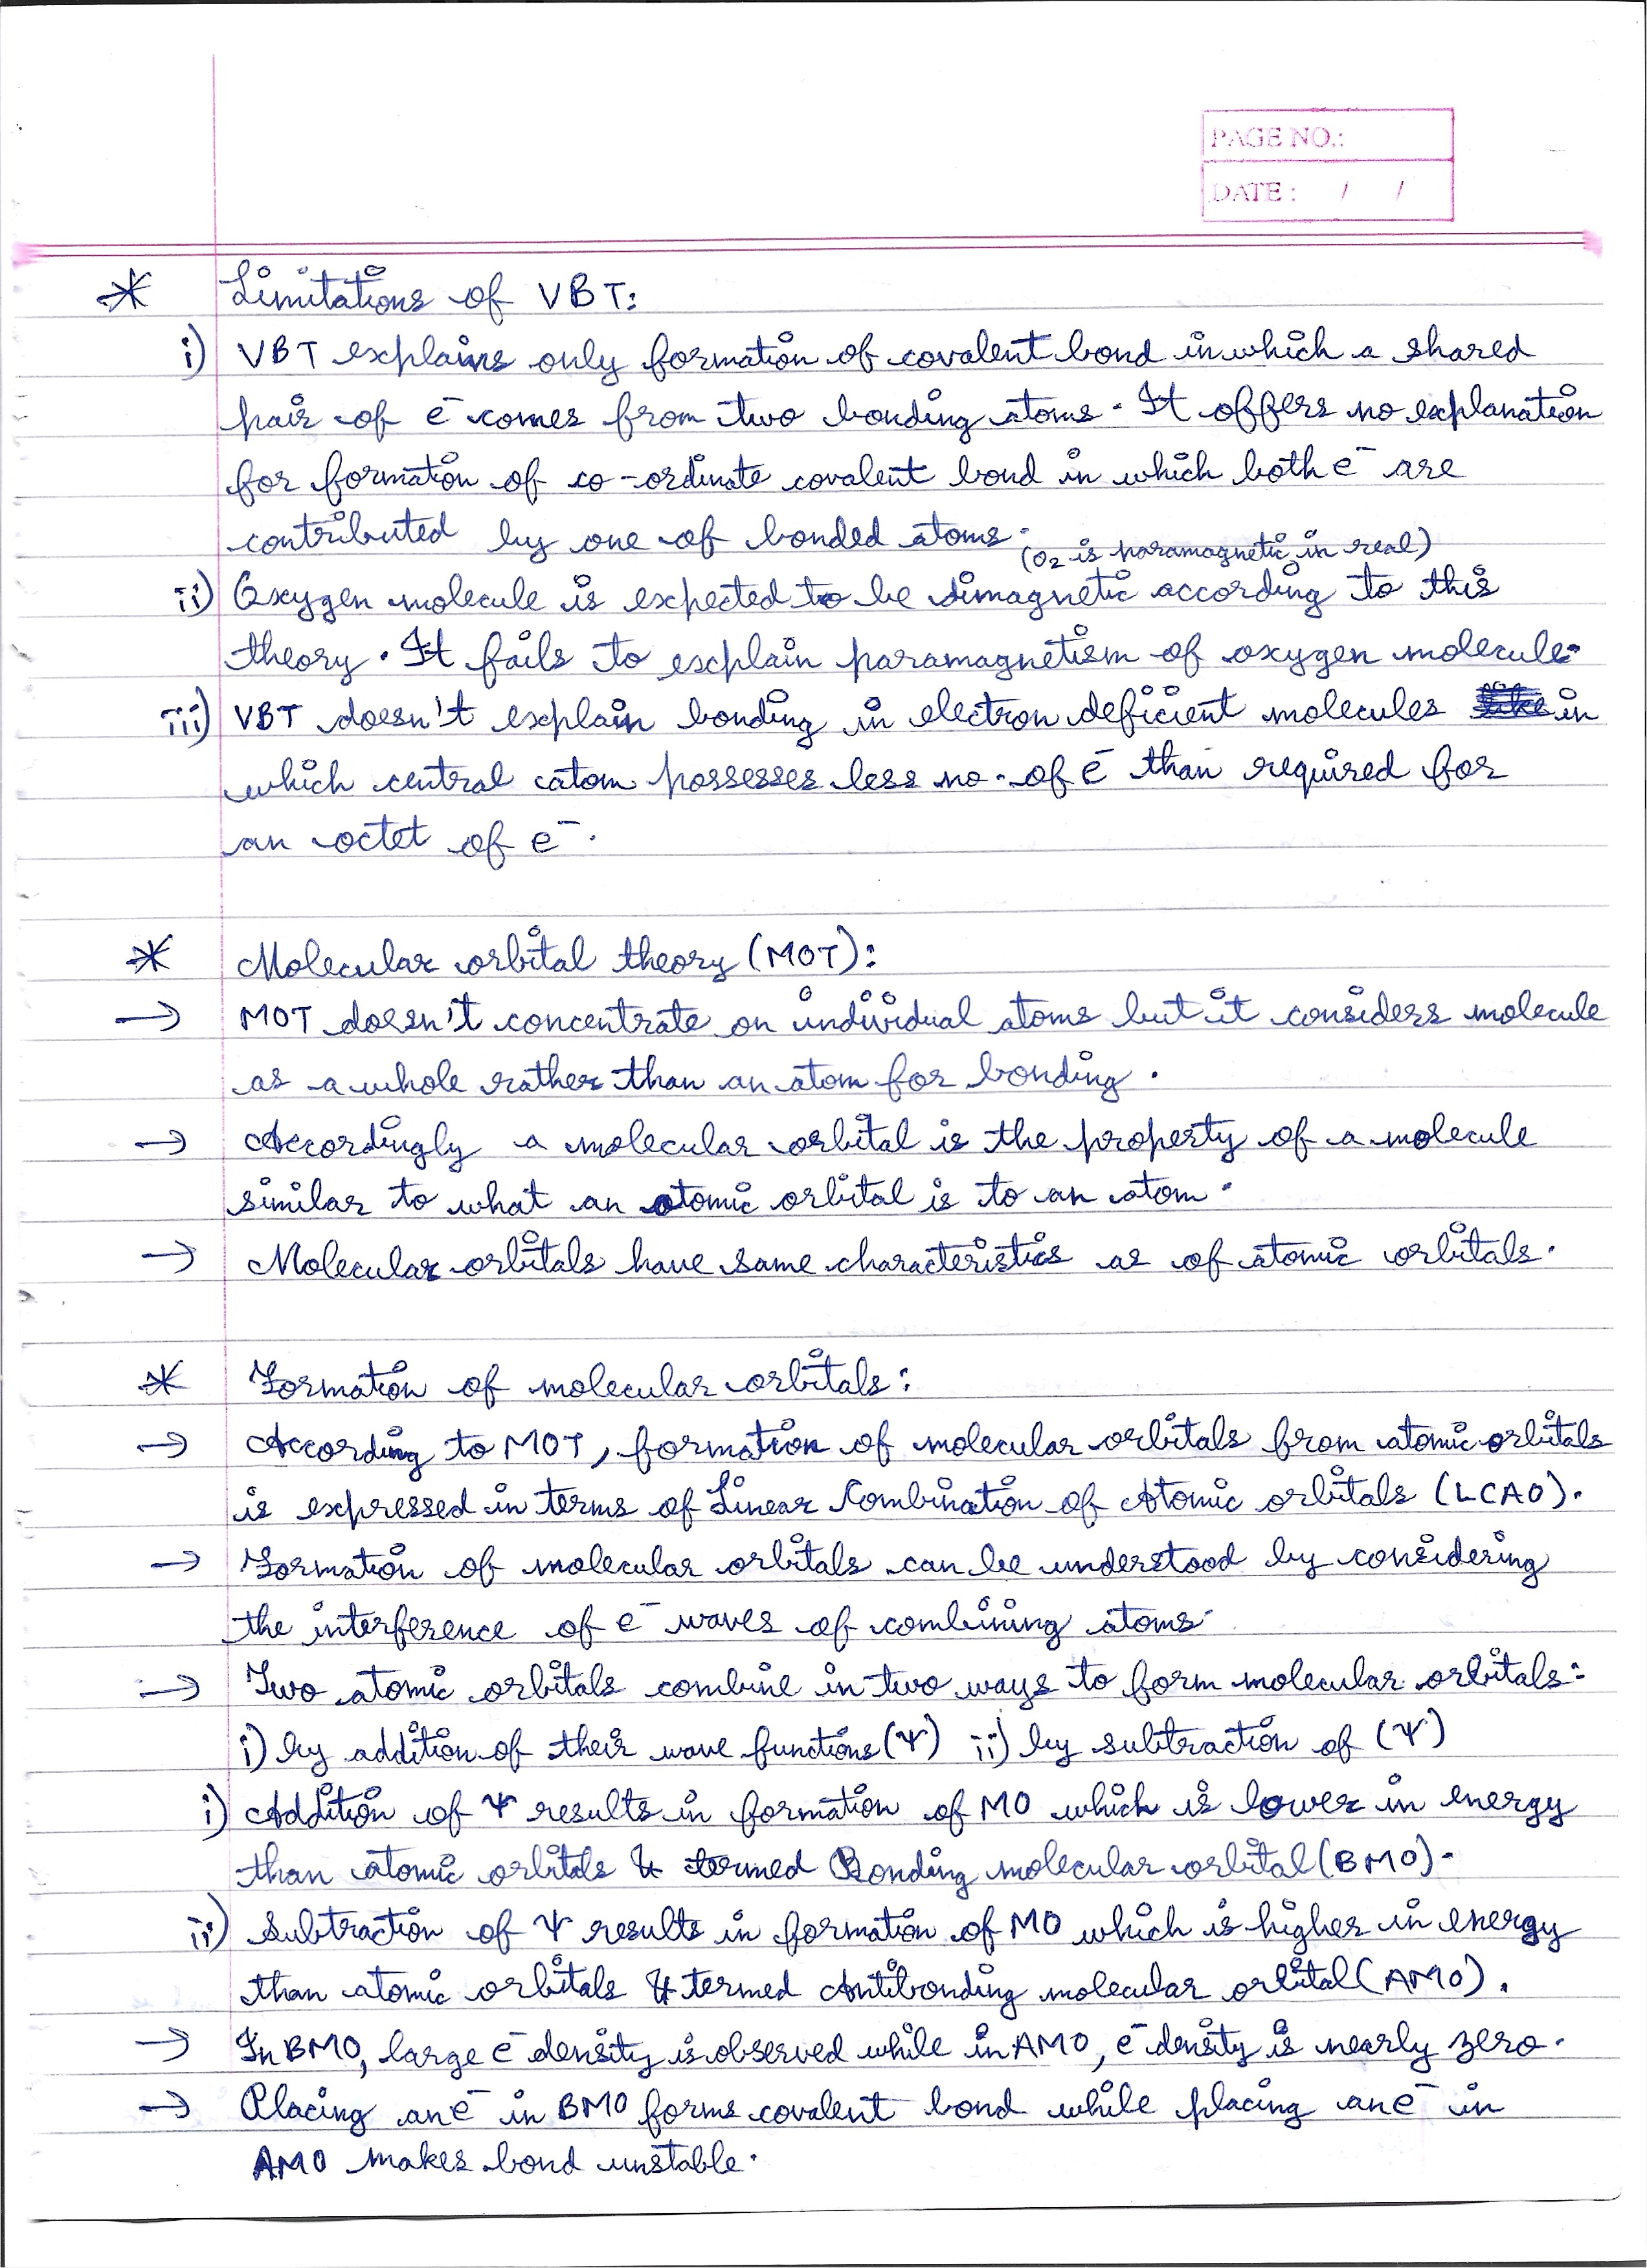 PAGE NO.:
DATE: / /
* Limitations of VBT:
i) VBT explains only formation of covalent bond in which a shared
pair of e⁻ comes from two bonding atoms. It offers no explanation
for formation of co-ordinate covalent bond in which both e⁻ are
contributed by one of bonded atoms.
(O₂ is paramagnetic in real)
ii) Oxygen molecule is expected to be dimagnetic according to this
theory. It fails to explain paramagnetism of oxygen molecule.
iii) VBT doesn't explain bonding in electron deficient molecules in
which central atom possesses less no. of e⁻ than required for
an octet of e⁻.
* Molecular orbital theory (MOT):
→ MOT doesn't concentrate on individual atoms but it considers molecule
as a whole rather than an atom for bonding.
→ Accordingly a molecular orbital is the property of a molecule
similar to what an atomic orbital is to an atom.
→ Molecular orbitals have same characteristics as of atomic orbitals.
* Formation of molecular orbitals:
→ According to MOT, formation of molecular orbitals from atomic orbitals
is expressed in terms of Linear Combination of Atomic orbitals (LCAO).
→ Formation of molecular orbitals can be understood by considering
the interference of e⁻ waves of combining atoms.
→ Two atomic orbitals combine in two ways to form molecular orbitals:
i) by addition of their wave functions (Ψ) ii) by subtraction of (Ψ)
i) Addition of Ψ results in formation of MO which is lower in energy
than atomic orbitals & termed Bonding molecular orbital (BMO).
ii) Subtraction of Ψ results in formation of MO which is higher in energy
than atomic orbitals & termed Antibonding molecular orbital (AMO).
→ In BMO, large e⁻ density is observed while in AMO, e⁻ density is nearly zero.
→ Placing an e⁻ in BMO forms covalent bond while placing an e⁻ in
AMO makes bond unstable.